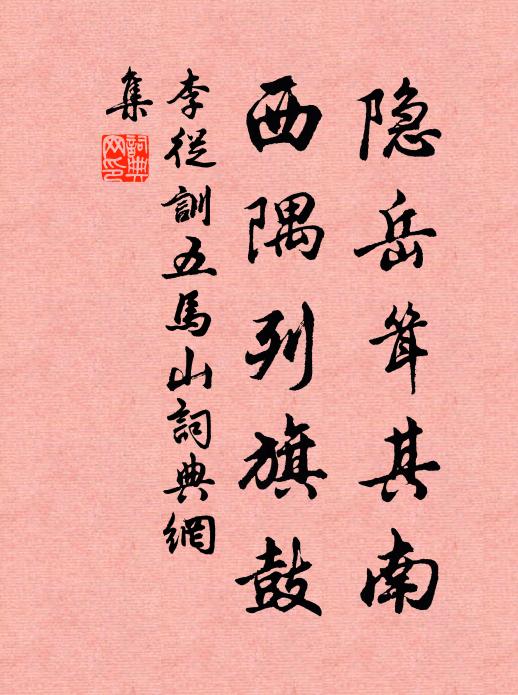 隐岳耸其南
西隅列旗鼓
李從訓五馬山詞典網
集
詞典網印